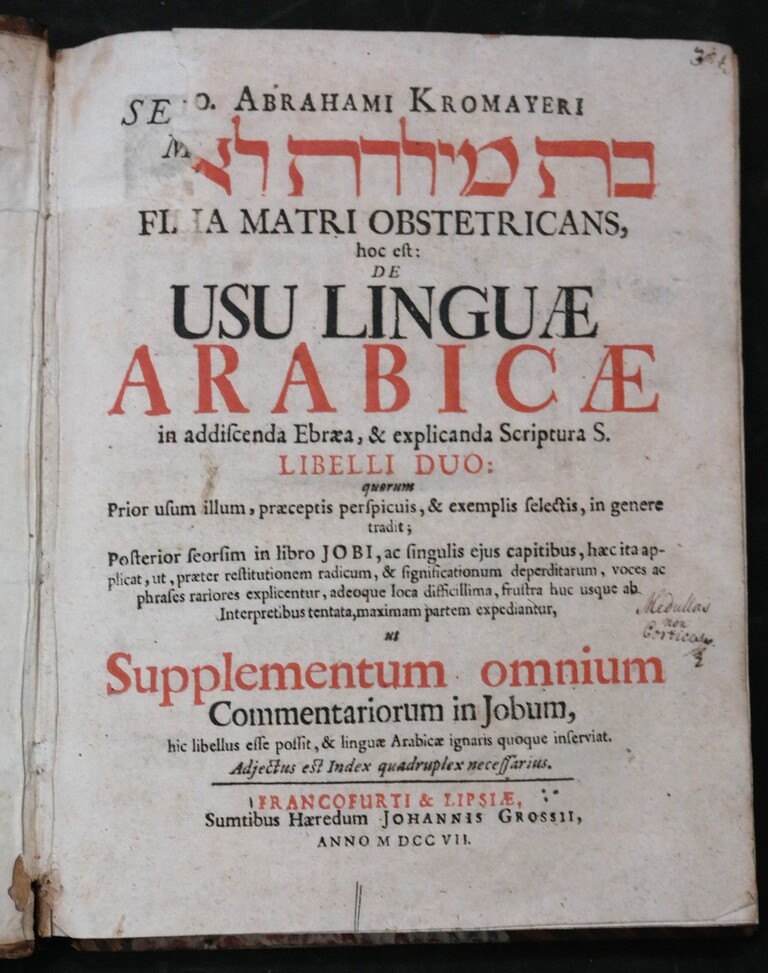 SE O. ABRAHAMI KROMAYERI
M
בת מילדת לא
FI IA MATRI OBSTETRICANS,
hoc eſt:
DE
USU LINGUÆ
ARABICÆ
in addiſcenda Ebræa, & explicanda Scriptura S.
LIBELLI DUO:
quorum
Prior uſum illum, præceptis perſpicuis, & exemplis ſelectis, in genere
tradit;
Poſterior ſeorſim in libro JOBI, ac ſingulis ejus capitibus, hæc ita ap-
plicat, ut, præter reſtitutionem radicum, & ſignificationum deperditarum, voces ac
phraſes rariores explicentur, adeoque loca difficillima, fruſtra huc usque ab
Interpretibus tentata, maximam partem expediantur,
Medullas
non
Cortices
ut
Supplementum omnium
Commentariorum in Jobum,
hic libellus eſſe poſſit, & linguæ Arabicæ ignaris quoque inſerviat.
Adjectus eſt Index quadruplex neceſſarius.
FRANCOFURTI & LIPSIÆ,
Sumtibus Hæredum JOHANNIS GROSSII,
ANNO M DCC VII.